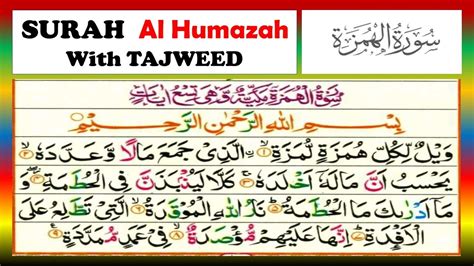 SURAH Al Humazah
With TAJWEED
سُورَةُ الْهُمَزَةِ
سُوْرَةُ الْهُمَزَةِ مَكِّيَّةٌ وَّهِيَ تِسْعُ اٰيَاتٍ
بِسْمِ اللّٰهِ الرَّحْمٰنِ الرَّحِيْمِ
وَيْلٌ لِّكُلِّ هُمَزَةٍ لُّمَزَةِ ۙ﴿۱﴾ الَّذِىْ جَمَعَ مَالًا وَّعَدَّدَهٗ ۙ﴿۲﴾
يَحْسَبُ اَنَّ مَالَهٗۤ اَخْلَدَهٗ ۚ﴿۳﴾ كَلَّا لَيُنْۢبَذَنَّ فِى الْحُطَمَةِ ۖ﴿۴﴾ وَ
مَاۤ اَدْرٰىكَ مَا الْحُطَمَةُ ؕ﴿۵﴾ نَارُ اللّٰهِ الْمُوْقَدَةُ ۙ﴿۶﴾ الَّتِىْ تَطَّلِعُ عَلَى
الْاَفْـِٕدَةِ ؕ﴿۷﴾ اِنَّهَا عَلَيْهِمْ مُّؤْصَدَةٌ ۙ﴿۸﴾ فِىْ عَمَدٍ مُّمَدَّدَةٍ ﴿۹﴾